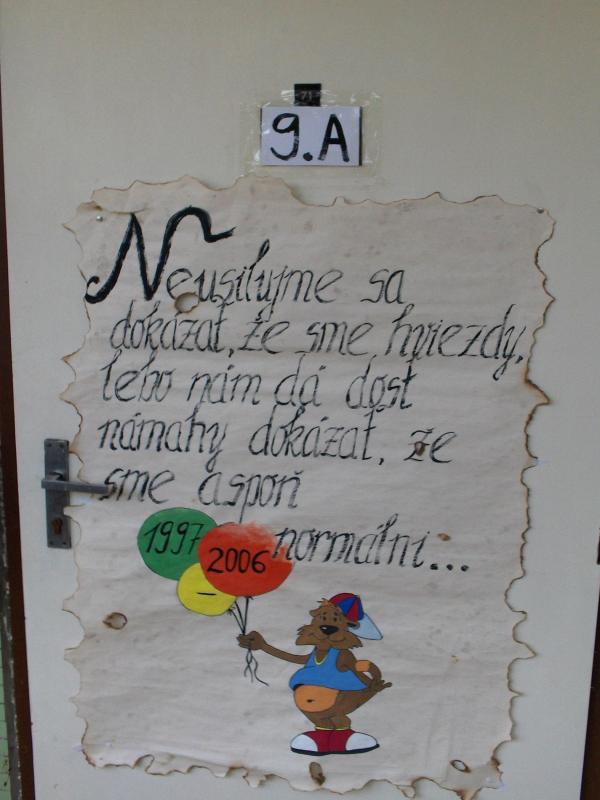 71
9.A
Neusilujme sa
dokázať, že sme hviezdy,
lebo nám dá dosť
námahy dokázať, že
sme aspoň
normálni...
1997
-
2006